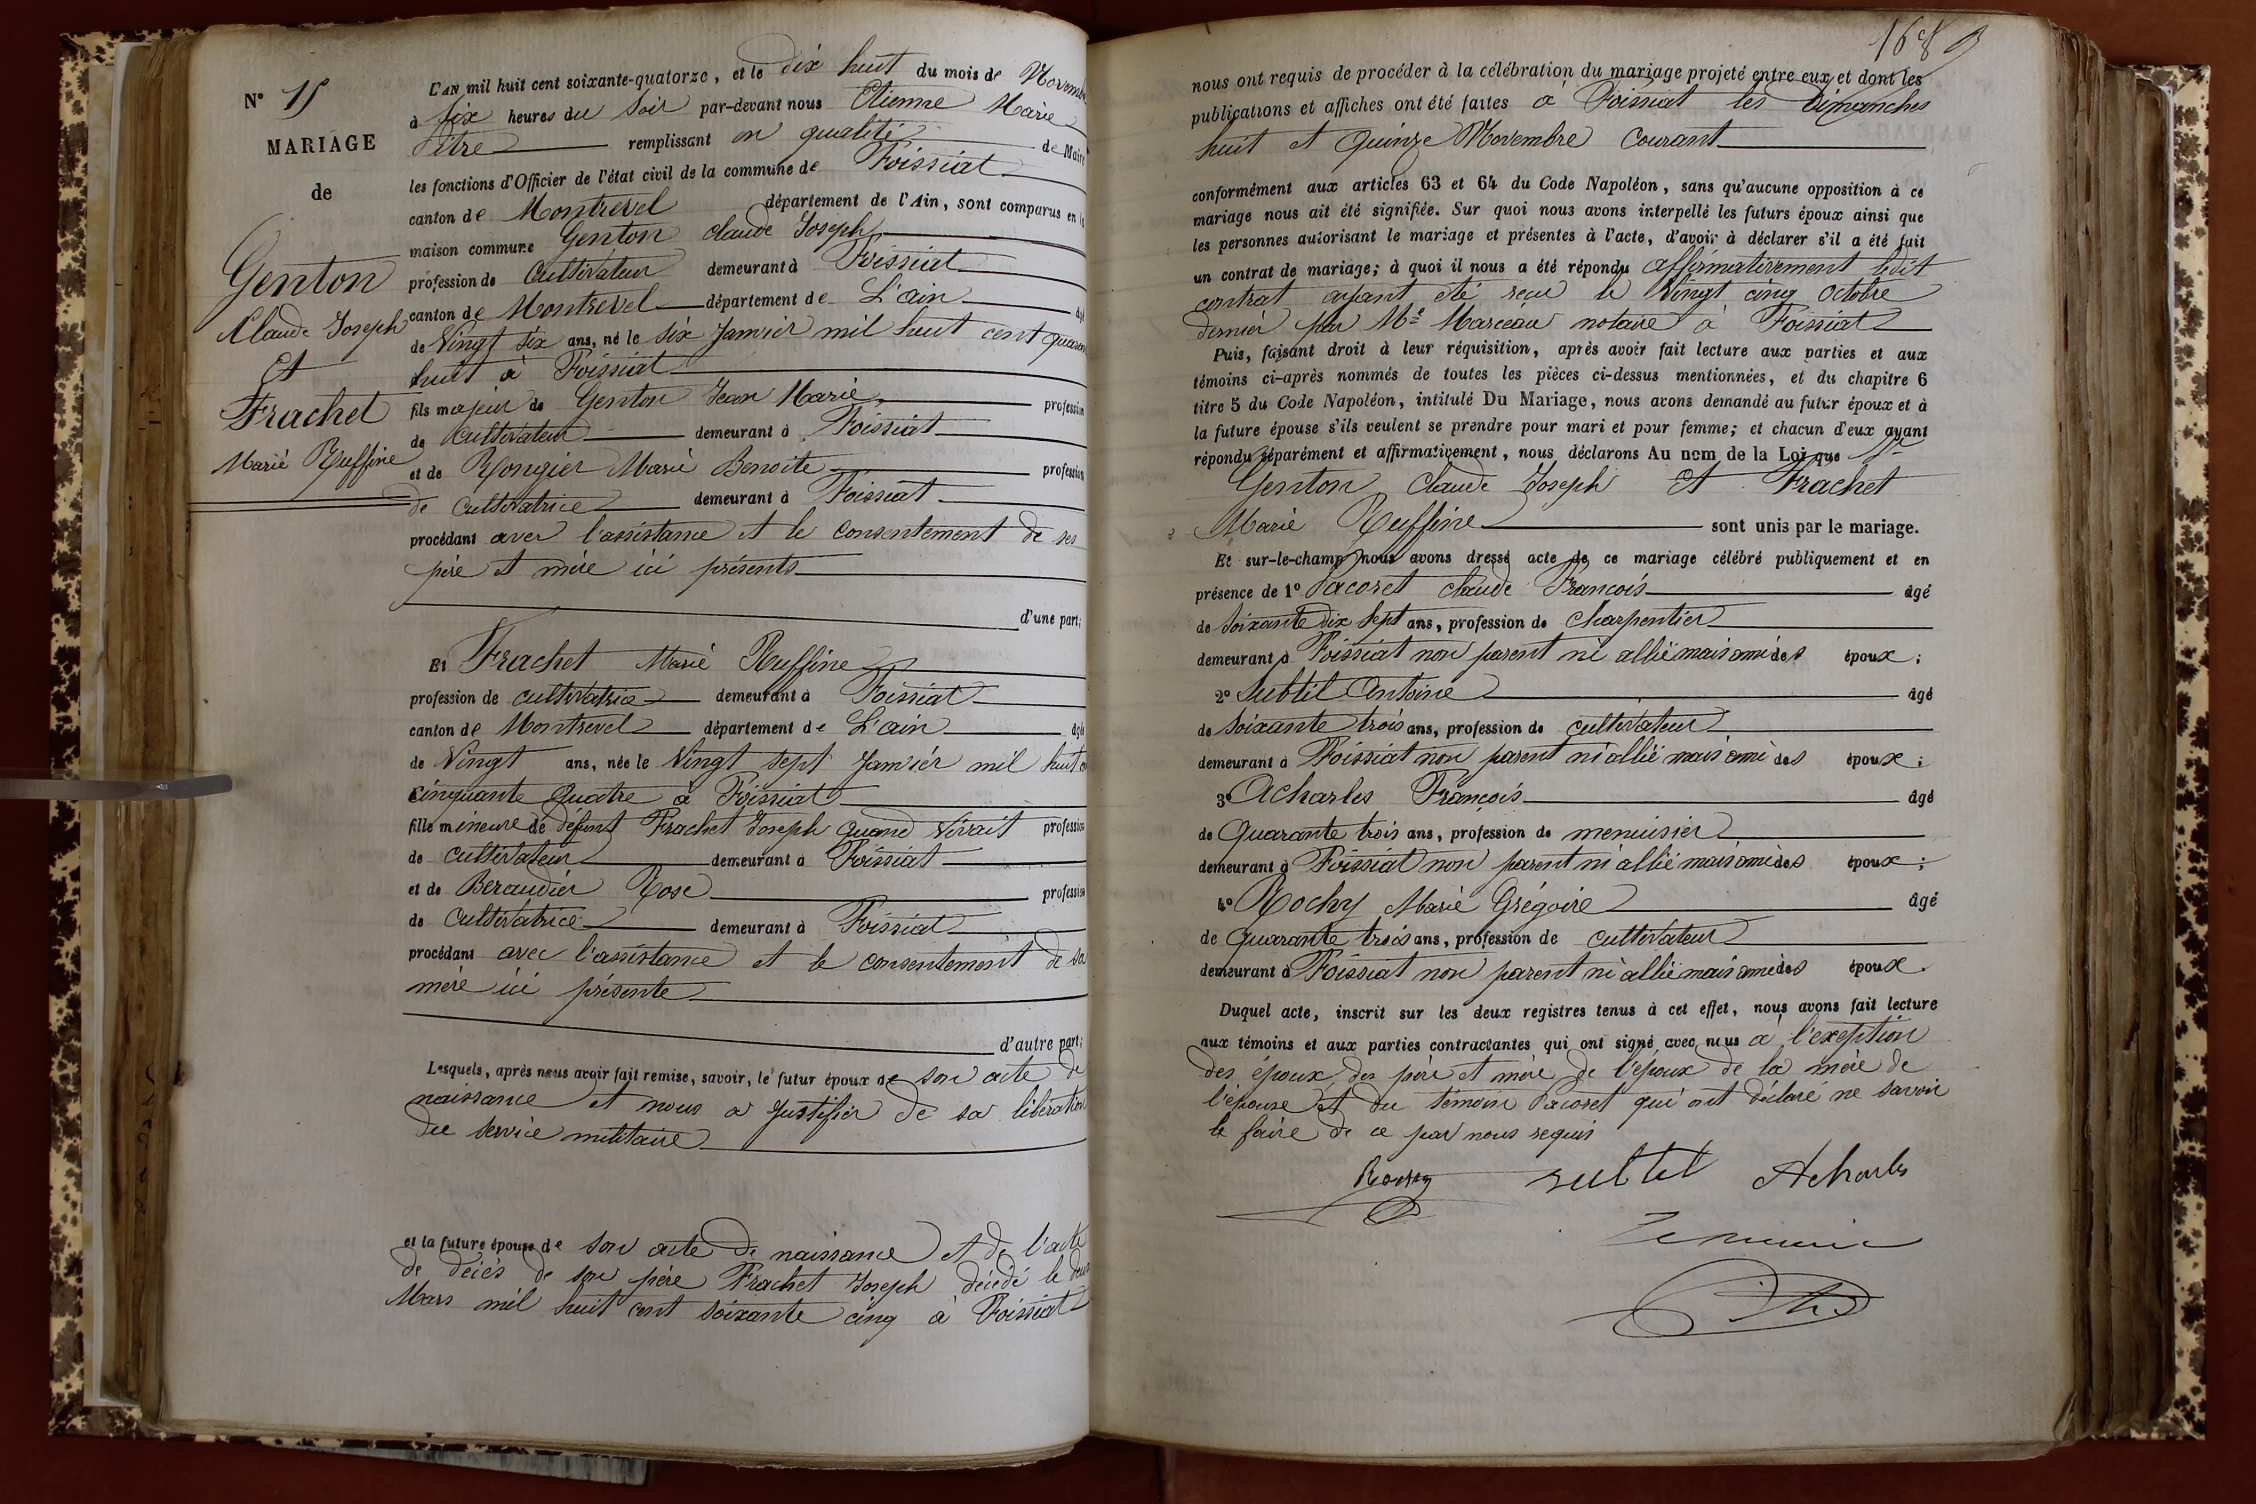 N° 15
MARIAGE
de
Genton
Claude Joseph
et
Frachet
Marie Ruffine
L'AN mil huit cent soixante-quatorze, et le dix huit du mois de Novembre
à six heures du Soir par-devant nous Etienne Marie
Pitre remplissant en qualité de Maire
les fonctions d'Officier de l'état civil de la commune de Foissiat
canton de Montrevel département de l'Ain, sont comparus en la
maison commune Genton Claude Joseph
profession de Cultivateur demeurant à Foissiat
canton de Montrevel département de L'ain âgé
de Vingt six ans, né le six Janvier mil huit cent quarante
huit à Foissiat
fils majeur de Genton Jean Marie profession
de Cultivateur demeurant à Foissiat
et de Rongier Marie Benoite profession
de Cultivatrice demeurant à Foissiat
procédant avec l'assistance et le consentement de ses
père et mère ici présents
d'une part;
Et Frachet Marie Ruffine
profession de cultivatrice demeurant à Foissiat
canton de Montrevel département de L'ain âgée
de Vingt ans, née le Vingt sept Janvier mil huit
cinquante quatre à Foissiat
fille mineure de défunt Frachet Joseph quand vivait profession
de cultivateur demeurant à Foissiat
et de Beraudier Rose profession
de Cultivatrice demeurant à Foissiat
procédant avec l'assistance et le consentement de sa
mère ici présente
d'autre part;
Lesquels, après nous avoir fait remise, savoir, le futur époux de son acte de
naissance et nous a justifier de sa libération
du service militaire
et la future épouse de son acte de naissance et de l'acte
de décès de son père Frachet Joseph décédé le deux
Mars mil huit cent soixante cinq à Foissiat
168
nous ont requis de procéder à la célébration du mariage projeté entre eux et dont les
publications et affiches ont été faites à Foissiat les dimanches
huit et quinze Novembre courant
conformément aux articles 63 et 64 du Code Napoléon, sans qu'aucune opposition à ce
mariage nous ait été signifiée. Sur quoi nous avons interpellé les futurs époux ainsi que
les personnes autorisant le mariage et présentes à l'acte, d'avoir à déclarer s'il a été fait
un contrat de mariage; à quoi il nous a été répondu affirmativement ledit
contrat ayant été reçu le Vingt cinq Octobre
dernier par Me Marceau notaire à Foissiat
Puis, faisant droit à leur réquisition, après avoir fait lecture aux parties et aux
témoins ci-après nommés de toutes les pièces ci-dessus mentionnées, et du chapitre 6
titre 5 du Code Napoléon, intitulé Du Mariage, nous avons demandé au futur époux et à
la future épouse s'ils veulent se prendre pour mari et pour femme; et chacun d'eux ayant
répondu séparément et affirmativement, nous déclarons Au nom de la Loi que
Genton Claude Joseph et Frachet
Marie Ruffine sont unis par le mariage.
Et sur-le-champ nous avons dressé acte de ce mariage célébré publiquement et en
présence de 1° Pacoret Claude François âgé
de Soixante dix sept ans, profession de Charpentier
demeurant à Foissiat non parent ni allié mais ami des époux;
2° Subtil Antoine âgé
de soixante trois ans, profession de cultivateur
demeurant à Foissiat non parent ni allié mais ami des époux;
3° Acharles François âgé
de Quarante trois ans, profession de menuisier
demeurant à Foissiat non parent ni allié mais ami des époux;
4° Rochy Marie Grégoire âgé
de quarante trois ans, profession de cultivateur
demeurant à Foissiat non parent ni allié mais ami des époux.
Duquel acte, inscrit sur les deux registres tenus à cet effet, nous avons fait lecture
aux témoins et aux parties contractantes qui ont signé avec nous à l'exeption
des époux, des père et mère de l'époux de la mère de
l'épouse et du témoin Pacoret qui ont déclaré ne savoir
le faire de ce par nous requis
subtil Acharles